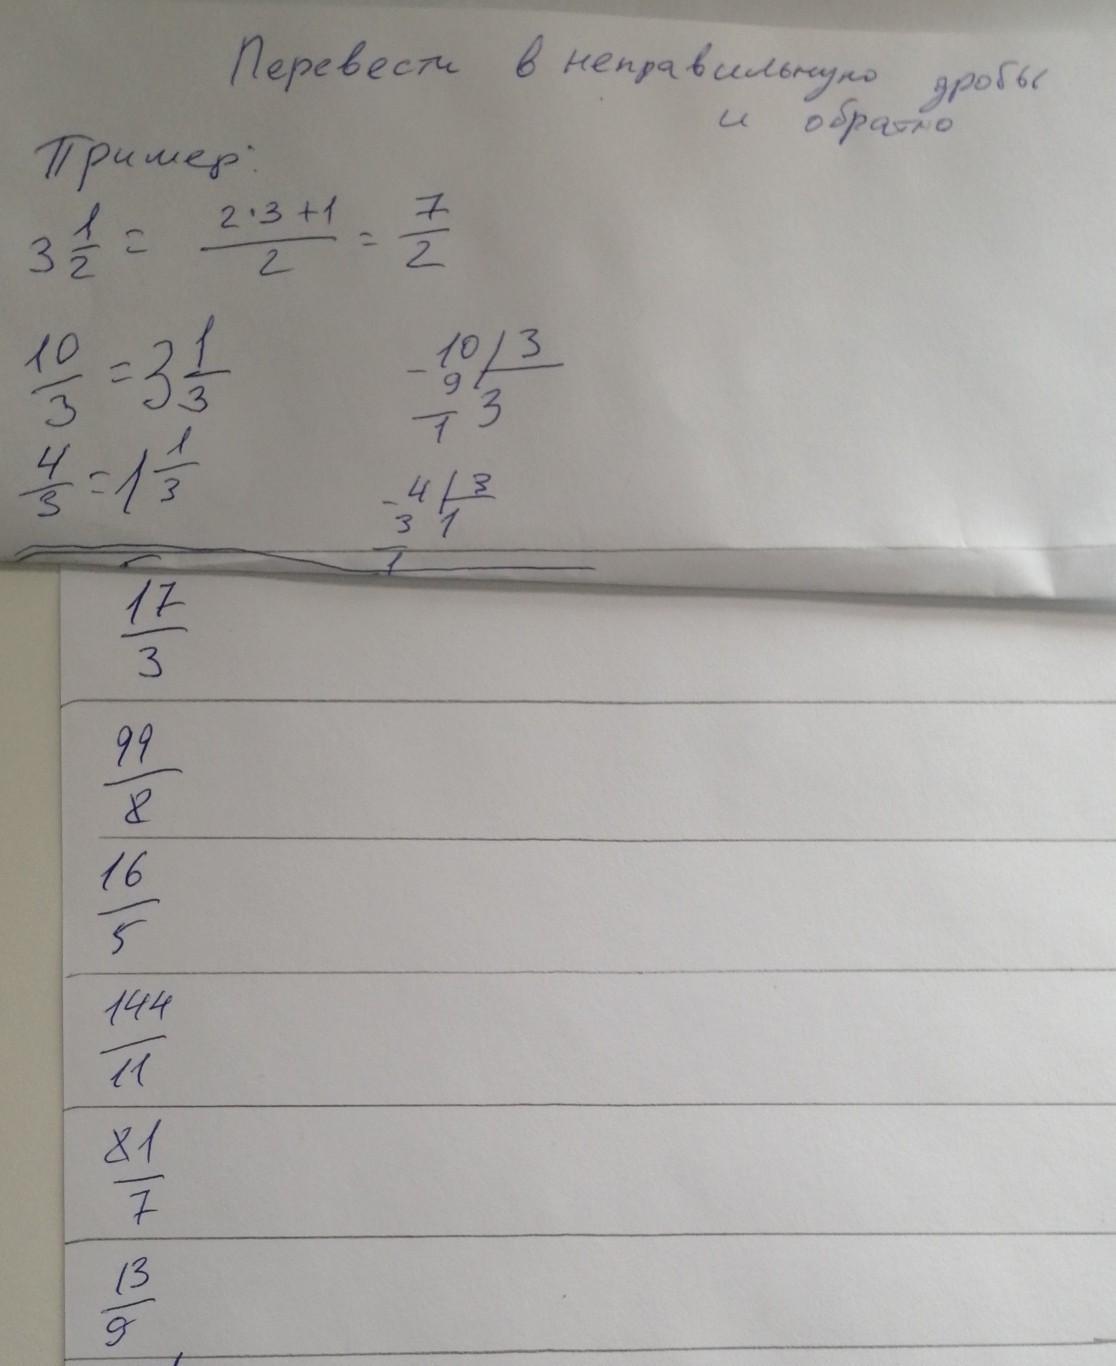 Перевести в неправильную дробы
и обратно
Пример:
3 1/2 = (2·3+1)/2 = 7/2
10/3 = 3 1/3
-10 | 3
9 3
1
4/3 = 1 1/3
-4 | 3
3 1
1
17/3
99/8
16/5
144/11
81/7
13/9